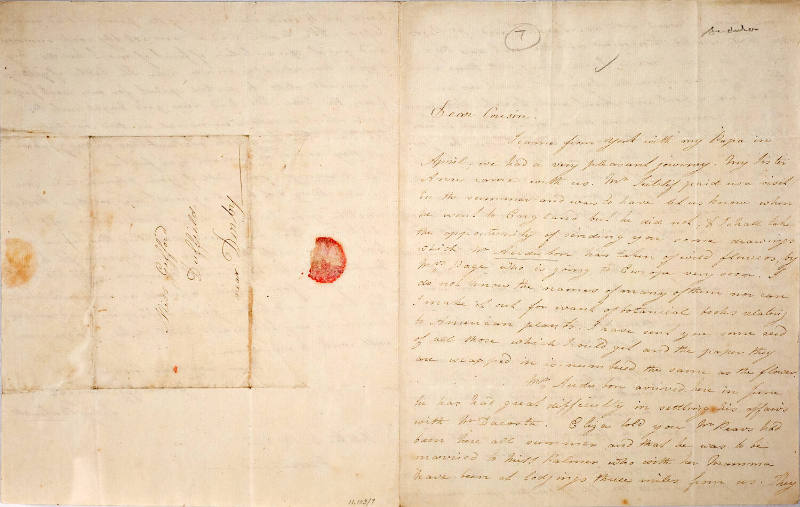 7
Miss Gifford
Duffield
near Derby
11.102/7
Dear Cousin.
I came from York with my Papa in
April, we had a very pleasant journey. My Sister
Anne came with us. Mr paid us a visit
in the summer and was to have let us know when
he went to England but he did not, & I shall take
the opportunity of sending you some drawings
which Mr Audubon has taken of wild flowers, by
Mrs Page who is going to Europe very soon. I
do not know the names of many of them nor can
I make it out for want of botanical books relating
to American plants. I have sent you some seed
of all those which I could get and the paper they
are wrapped in is numbered the same as the flower.
Mr Audubon arrived here in June
he has had great difficulty in settling his affairs
with Mr Dacosta. Eliza told you Mr Pears had
been here all summer and that he was to be
married to Miss Palmer who with her Mamma
have been at lodgings three miles from us. They